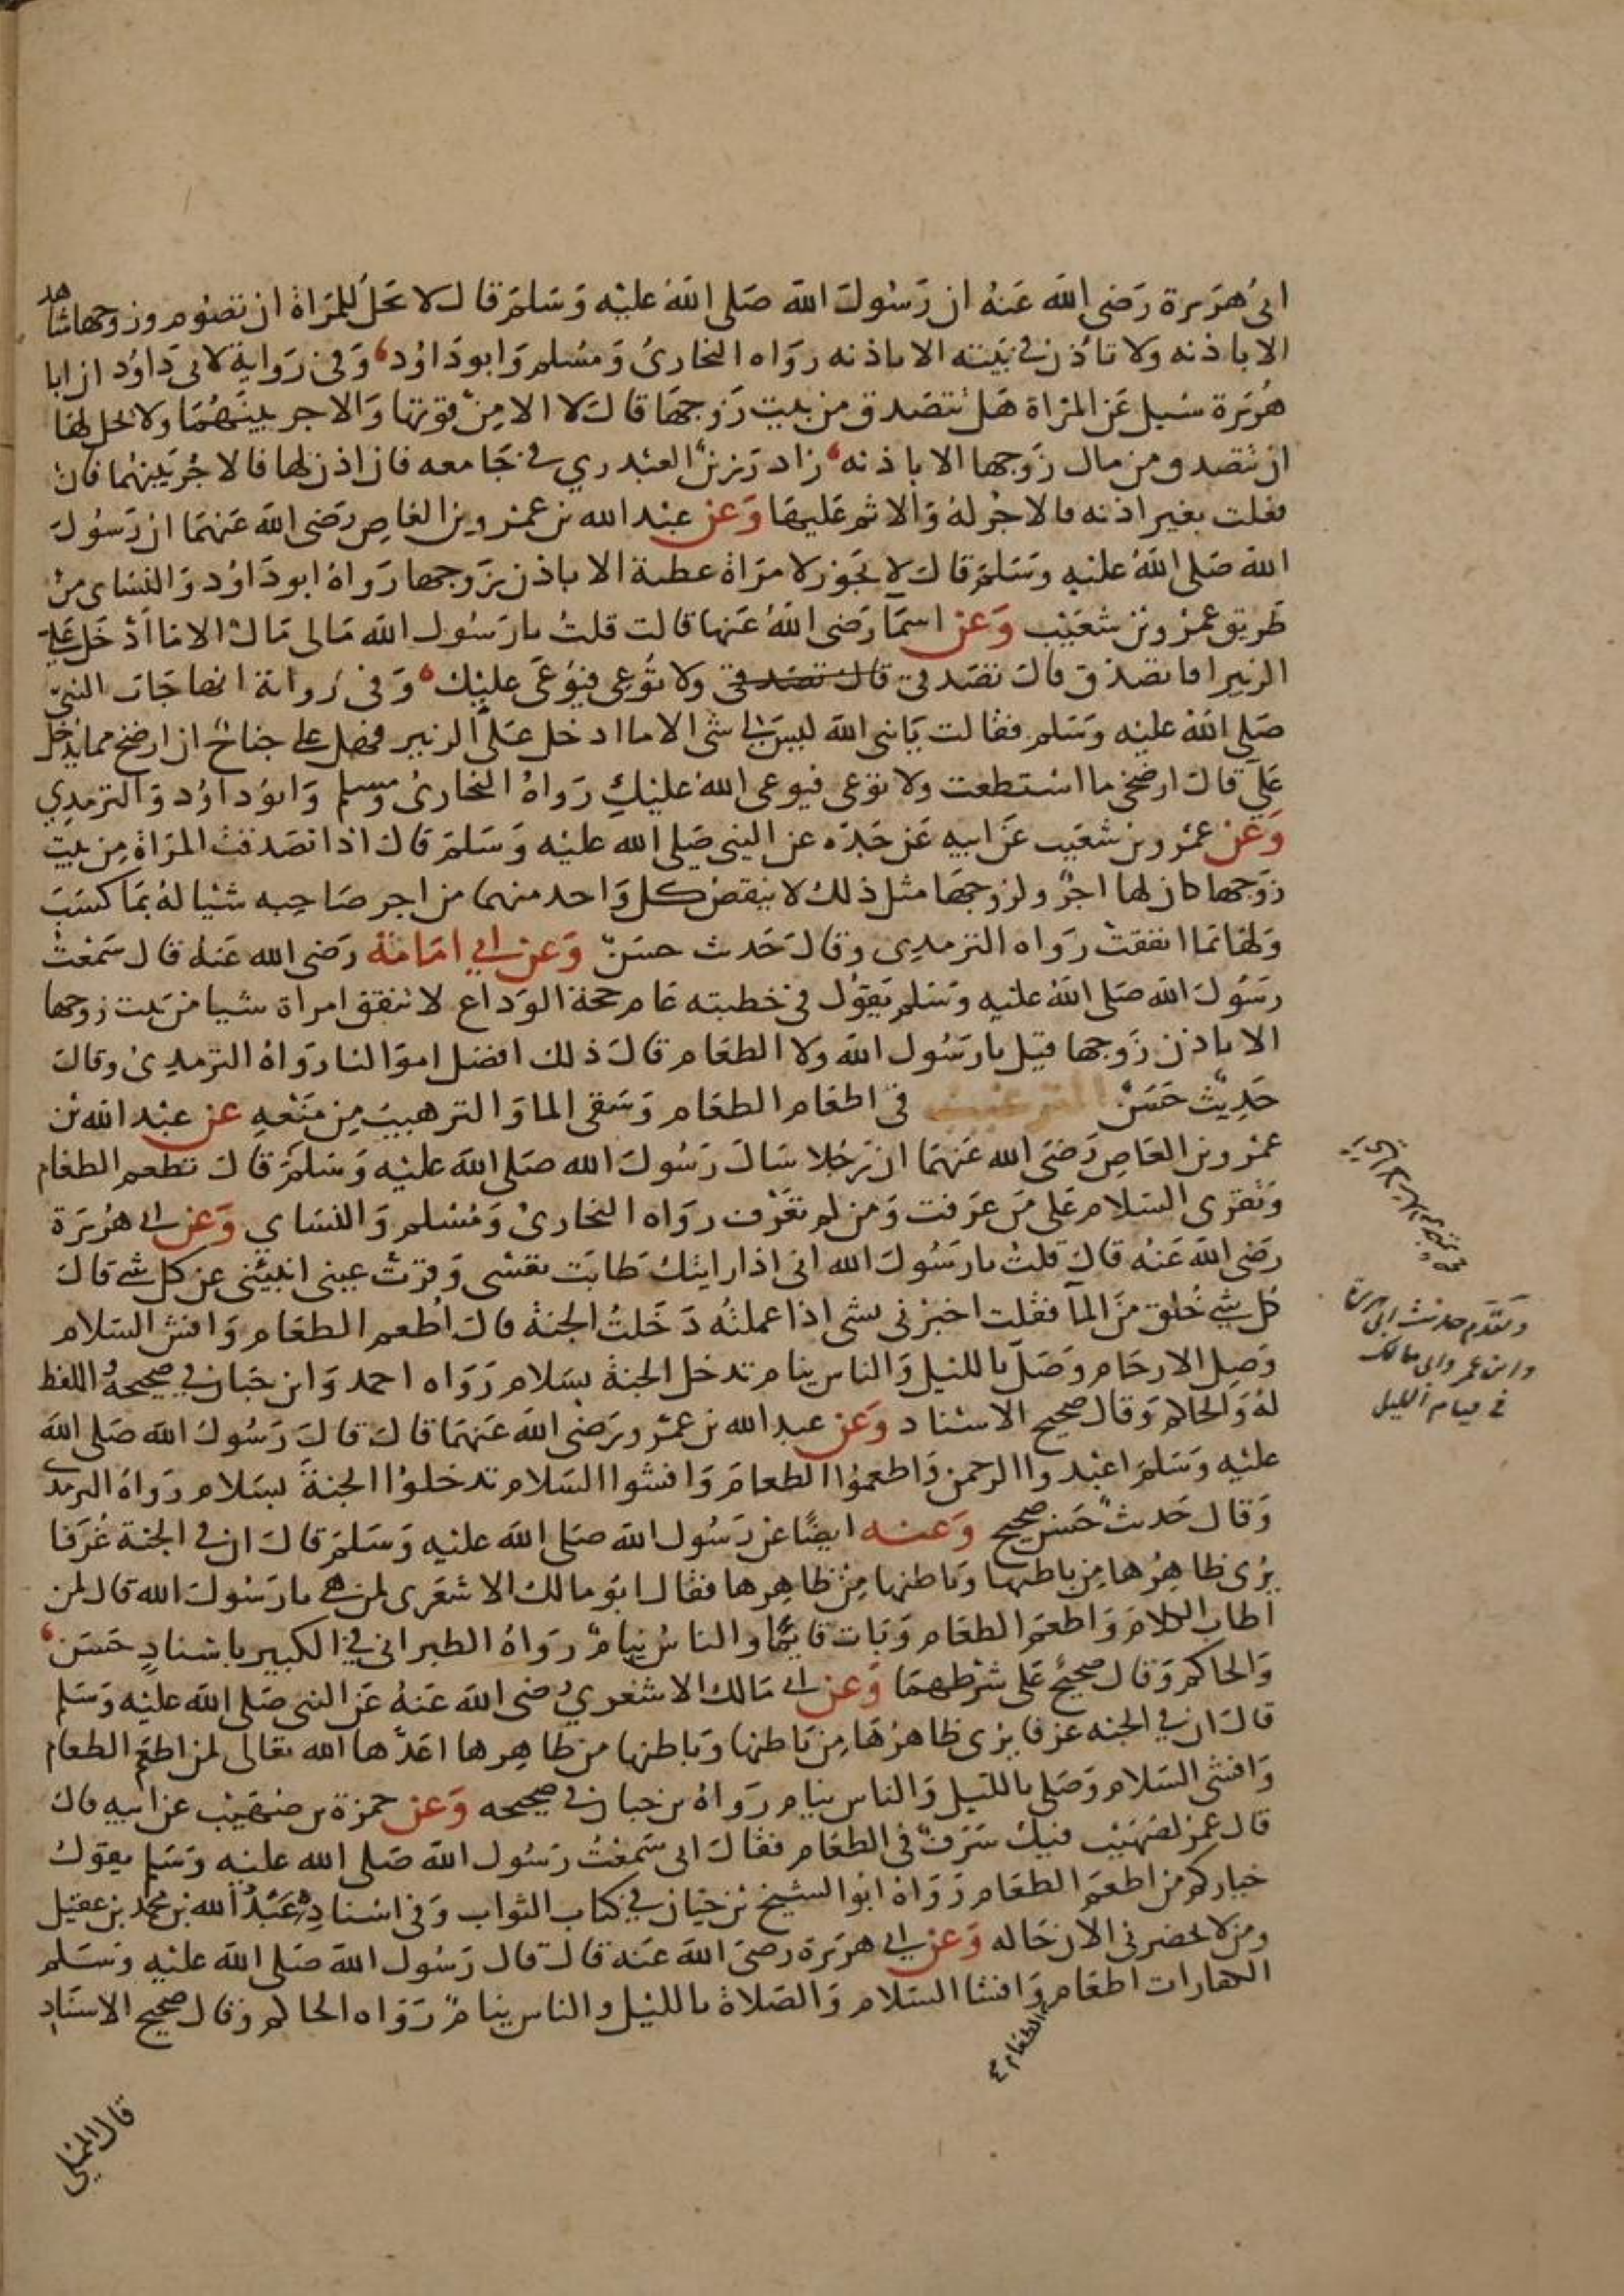 ابى هريرة رضى الله عنه ان رسول الله صلى الله عليه وسلم قال لا يحل للمراة ان تصوم وزوجها شاهد
الا باذنه ولا تاذن فى بيته الا باذنه رواه البخارى ومسلم وابو داود وفى رواية لابى داود ان ابا
هريرة سيل عن المراة هل تتصدق من بيت زوجها قال لا الا من قوتها والاجر بينهما ولا يحل لها
ان تتصدق من مال زوجها الا باذنه زاد رزين العبدري في جامعه فان اذن لها فالاجر بينهما فان
فعلت بغير اذنه فالاجر له والاثم عليها وعن عبد الله بن عمرو بن العاص رضى الله عنهما ان رسول
الله صلى الله عليه وسلم قال لا يجوز لامراة عطية الا باذن زوجها رواه ابو داود والنساى من
طريق عمرو بن شعيب وعن اسما رضى الله عنها قالت قلت يا رسول الله مالى مال الا ما ادخل على
الزبير افاتصدق قال تصدقى قال تصدقى ولا توعى فيوعى عليك وفى رواية انها جات النبى
صلى الله عليه وسلم فقالت يا نبى الله ليس لى شى الا ما ادخل على الزبير فهل على جناح ان ارضخ مما يدخل
على قال ارضخى ما استطعت ولا توعى فيوعى الله عليك رواه البخارى ومسلم وابو داود والترمذي
وعن عمرو بن شعيب عن ابيه عن جده عن النبى صلى الله عليه وسلم قال اذا تصدقت المراة من بيت
زوجها كان لها اجر ولزوجها مثل ذلك لا ينقص كل واحد منهما من اجر صاحبه شيا له بما كسب
ولها بما انفقت رواه الترمذى وقال حديث حسن وعن ابي امامة رضى الله عنه قال سمعت
رسول الله صلى الله عليه وسلم يقول فى خطبته عام حجة الوداع لا تنفق امراة شيا من بيت زوجها
الا باذن زوجها قيل يا رسول الله ولا الطعام قال ذلك افضل اموالنا رواه الترمذى وقال
حديث حسن الترغيب فى اطعام الطعام وسقى الما والترهيب من منعه عن عبد الله بن
عمرو بن العاص رضى الله عنهما ان رجلا سال رسول الله صلى الله عليه وسلم قال تطعم الطعام
وتقرى السلام على من عرفت ومن لم تعرف رواه البخارى ومسلم والنساى وعن ابى هريرة
رضى الله عنه قال قلت يا رسول الله انى اذا رايتك طابت نفسى وقرت عينى انبئنى عن كل شي قال
كل شي خلق من الما فقلت اخبرنى بشى اذا عملته دخلت الجنة قال اطعم الطعام وافش السلام
وصل الارحام وصل بالليل والناس نيام تدخل الجنة بسلام رواه احمد وابن حبان في صحيحه واللفظ
له والحاكم وقال صحيح الاسناد وعن عبد الله بن عمرو رضى الله عنهما قال قال رسول الله صلى الله
عليه وسلم اعبدوا الرحمن واطعموا الطعام وافشوا السلام تدخلوا الجنة بسلام رواه الترمذى
وقال حديث حسن صحيح وعنه ايضا عن رسول الله صلى الله عليه وسلم قال ان في الجنة غرفا
يرى ظاهرها من باطنها وباطنها من ظاهرها فقال ابو مالك الاشعرى لمن هي يا رسول الله قال لمن
اطاب الكلام واطعم الطعام وبات قايما والناس نيام رواه الطبرانى في الكبير باسناد حسن
والحاكم وقال صحيح على شرطهما وعن ابى مالك الاشعري رضى الله عنه عن النبى صلى الله عليه وسلم
قال ان في الجنه غرفا يرى ظاهرها من باطنها وباطنها من ظاهرها اعدها الله تعالى لمن اطعم الطعام
وافشى السلام وصلى بالليل والناس نيام رواه بن حبان في صحيحه وعن حمزة بن صهيب عن ابيه قال
قال عمر لصهيب فيك سرف فى الطعام فقال انى سمعت رسول الله صلى الله عليه وسلم يقول
خياركم من اطعم الطعام رواه ابو الشيخ بن حيان في كتاب الثواب وفى اسناده عبد الله بن محمد بن عقيل
ومن لا يحضرنى الان حاله وعن ابى هريرة رضى الله عنه قال قال رسول الله صلى الله عليه وسلم
الكفارات اطعام وافشا السلام والصلاة بالليل والناس نيام رواه الحاكم وقال صحيح الاسناد
الطعام
وتقدم حديث ابى هريرة
وابن عمر وابى مالك
في قيام الليل
قال المملى